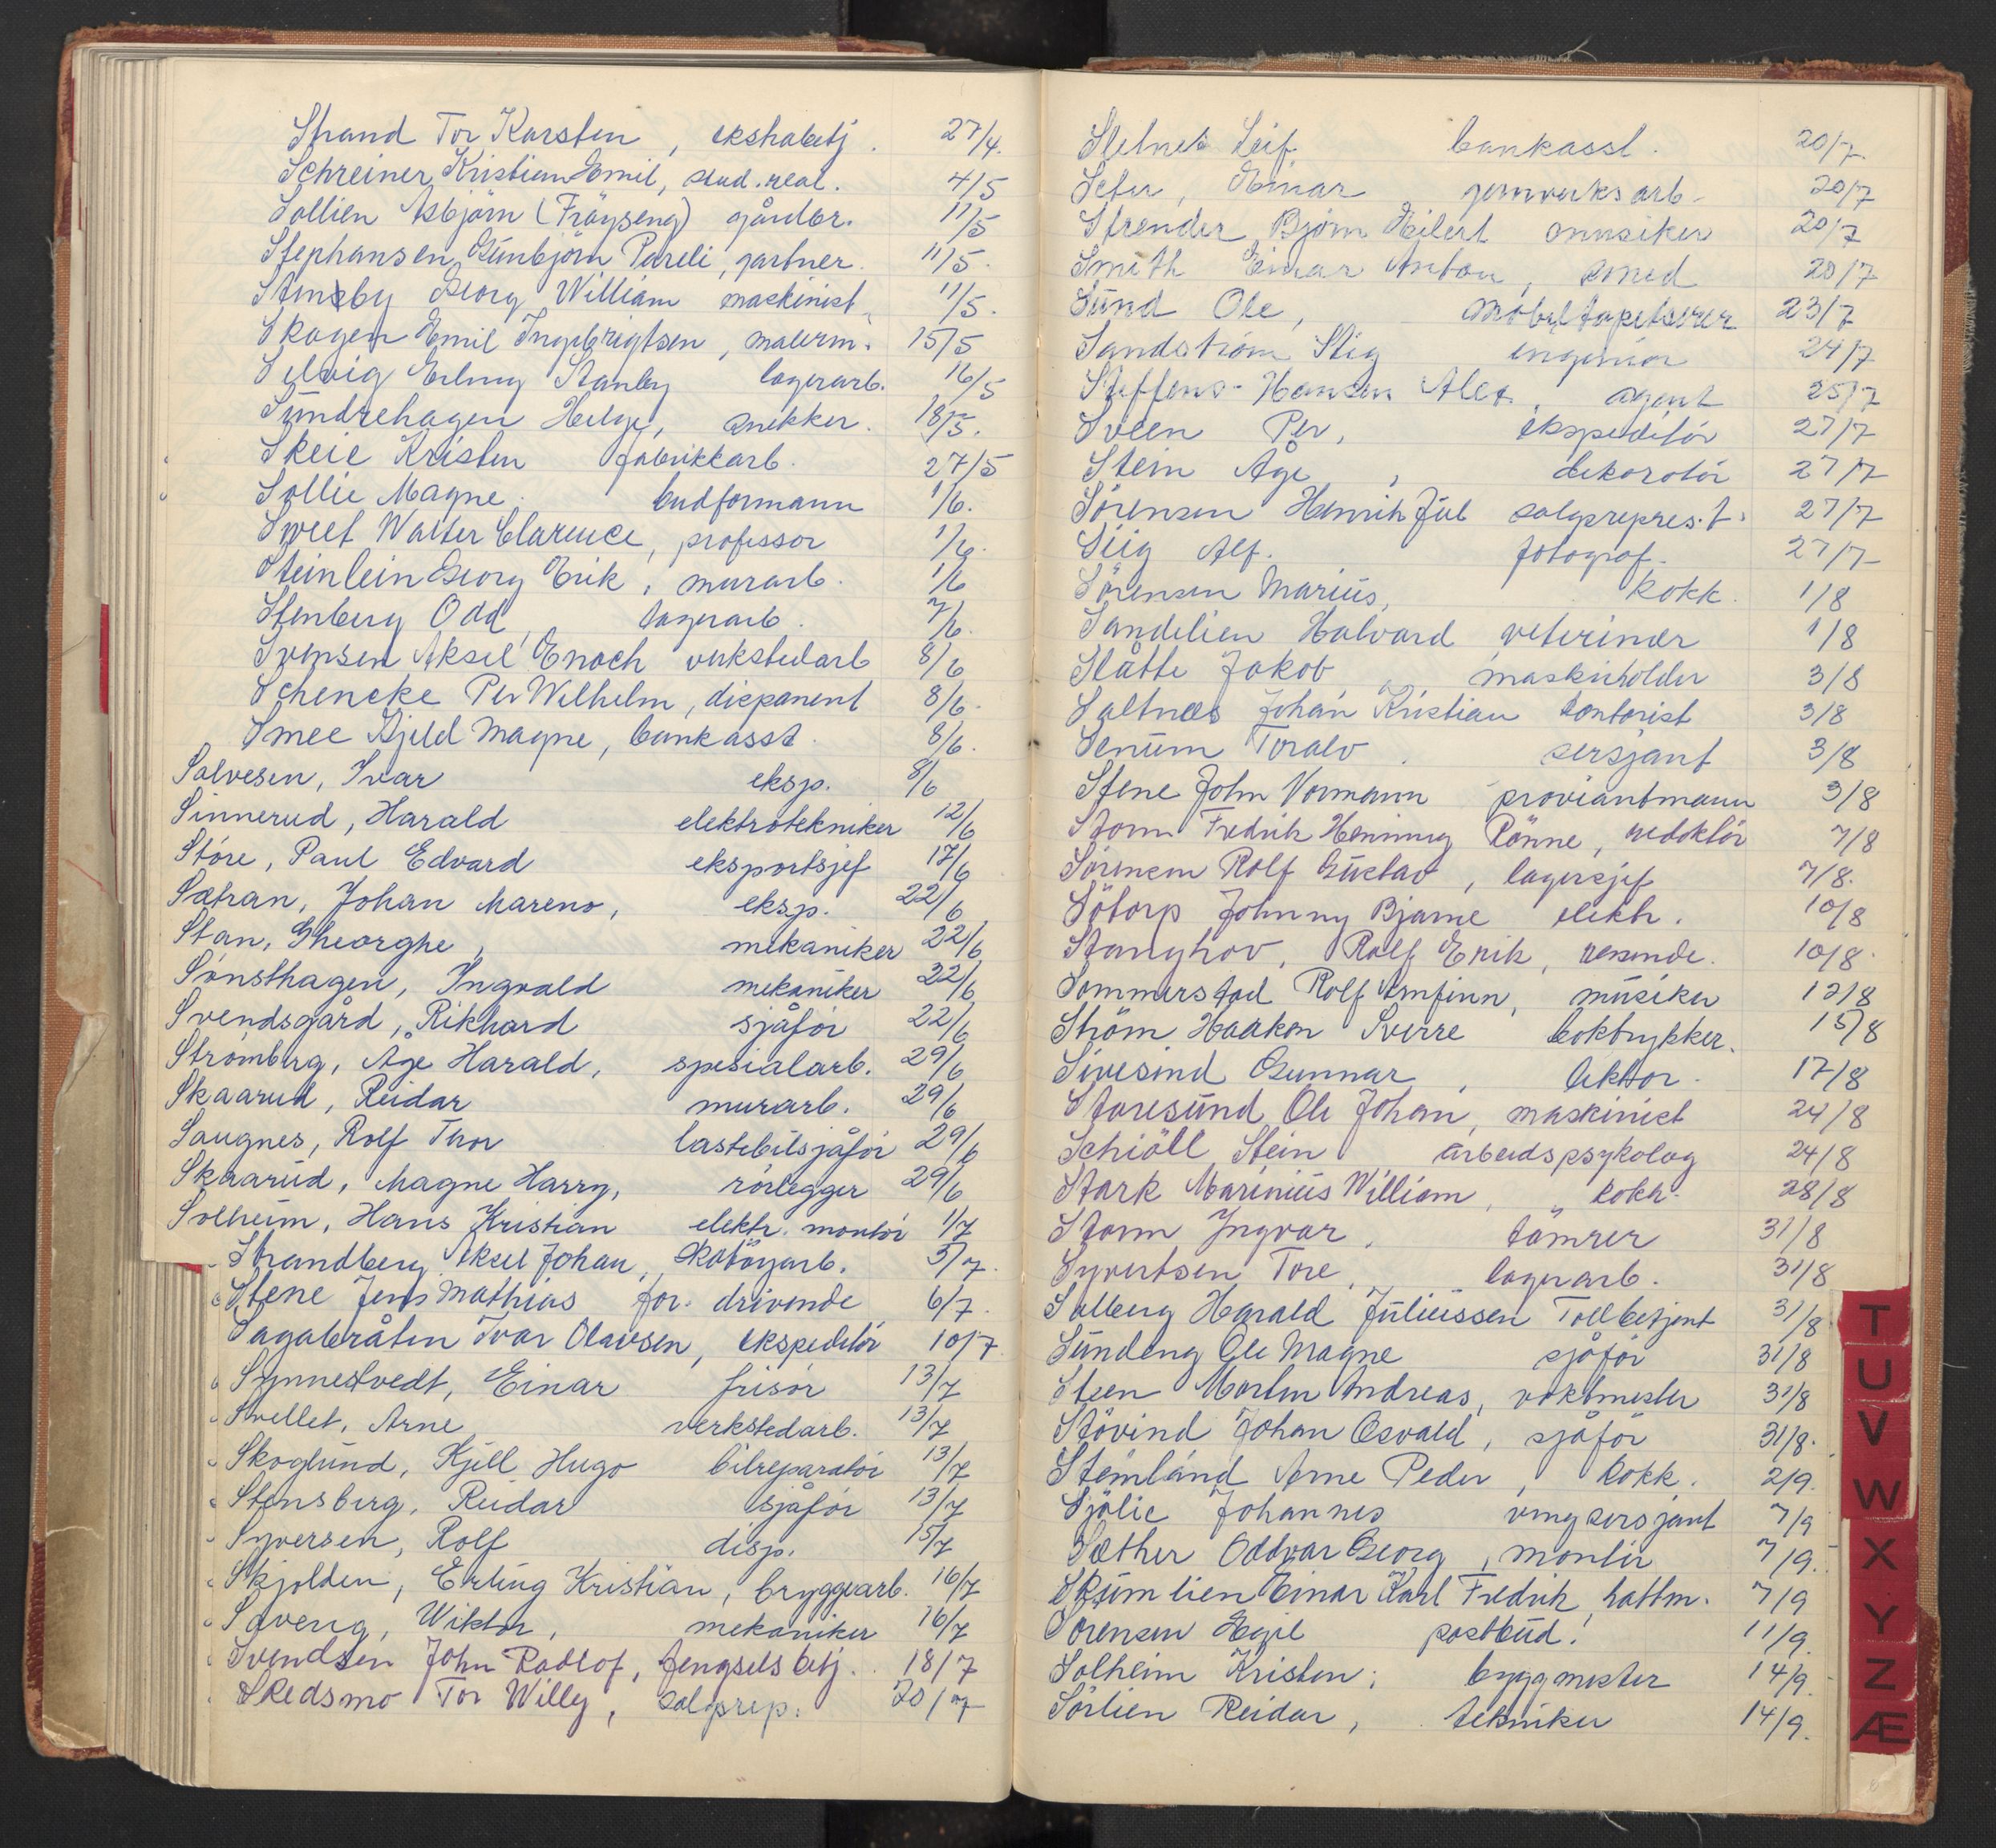 Strand Tor Karsten, ekstrabetj. 27/4.
Schreiner, Kristian Emil, stud. real. 4/5
Sollien Asbjörn (Fröyseng) gårdbr. 11/5
Stephansen, Gunbjörn Pareli, gartner. 11/5.
Stensby Georg William maskinist. 11/5.
Skogen Emil Ingebrigtsen, malerm. 15/5
Selvig Erling Stanley lagerarb. 16/5
Sundrehagen Helge, snekker. 18/5.
Skeie Kristen fabrikkarb. 27/5
Sollie Magne. budformann 1/6.
Sweet Walter Clarence, professor 1/6.
Steinlein Georg Erik, murarb. 1/6
Stenberg Odd, lagerarb. 7/6.
Svensen Aksel Enoch verkstedarb 8/6
Schencke Per Wilhelm, disponent 8/6.
Smee Kjeld Magne, bankasst. 8/6.
Salvesen, Ivar eksp. 8/6
Sinnerud, Harald elektrotekniker 12/6
Störe, Paul Edvard eksportsjef 17/6
Sætran, Johan Mareno, eksp. 22/6
Stan, Gheorghe, mekaniker 22/6
Sönsthagen, Ingvald mekaniker 22/6
Svendsgård, Rikhard sjåför 22/6
Strömberg, Åge Harald, spesialarb. 29/6
Skaarud, Reidar murarb. 29/6
Saugnes, Rolf Thor lastebilsjåför 29/6
Skaarud, Magne Harry, rörlegger 29/6
Solheim, Hans Kristian elektr. montör 1/7
Strandberg Aksel Johan, skotöyarb. 3/7.
Stene Jens Mathias for. drivende 6/7.
Sagabråten Ivar Olausen, ekspeditör 10/7
Synnestvedt, Einar frisör 13/7
Svellet, Arne verkstedarb. 13/7
Skoglund, Kjell Hugo bilreparatör 13/7
Stensberg, Reidar sjåför 13/7
Syversen, Rolf disp. 15/7
Skjolden, Erling Kristian, bryggearb. 16/7
Saverig, Wiktor, mekaniker 16/7
Svendsen John Radlof, fengselsbetj. 18/7
Skedsmo Tor Willy, salgsrep. 20/7
Sletnes Leif bankasst. 20/7.
Seter, Einar jernverksarb. 20/7
Strender Bjørn Eilert musiker 20/7
Smith Einar Anton, smed 20/7
Sund Ole, möbeltapetserer 23/7
Sandström Stig ingeniör 24/7
Steffens-Hansen Alex, agent 25/7
Sveen Per, ekspeditör 27/7
Stein Åge, dekoratör 27/7
Sörensen Henrik Juul salgsrepres.t. 27/7
Siig Alf. fotograf. 27/7
Sörensen Marius, kokk. 1/8
Sandelien Halvard veterinær 1/8
Slåtte Jakob, maskinholder 3/8
Saltnes Johan Kristian kontorist 3/8
Senum Toralv. sersjant 3/8
Stene John Normann proviantmann 3/8
Storm Fredrik Henning Rönne, redaktör 7/8
Sörensen Rolf Gustav, lagersjef 7/8.
Sötorp Johnny Bjarne elektr. 10/8
Stanghov, Rolf Erik, reisende. 10/8
Sommerstad Rolf Arnfinn, musiker 12/8
Ström Haakon Sverre boktrykker. 15/8
Sivesind Gunnar, lektor. 17/8
Staresund Ole Johan, maskinist 24/8
Schiöll Stein arbeidspsykolog 24/8
Stark Marinius William, kokk. 28/8
Storm Yngvar, tömrer 31/8
Syvertsen Tore, lagerarb. 31/8
Solberg Harald Juliussen Tollbetjent 31/8
Sundeng Ole Magne sjåför 31/8
Steen Morten Andreas, vaktmester 31/8
Stövind Johan Osvald, sjåför 31/8.
Stemland Arne Peder, kokk. 2/9.
Sjölie Johannes vingsersjant 7/9
Sæther Oddvar Georg, montör 7/9.
Skumlien Einar Karl Fredrik, hattm. 7/9
Sörensen Egil postbud. 11/9.
Solheim Kristen, byggmester 14/9.
Sörlien Reidar, tekniker 14/9.
T
U
V
W
X
Y
Z
Æ